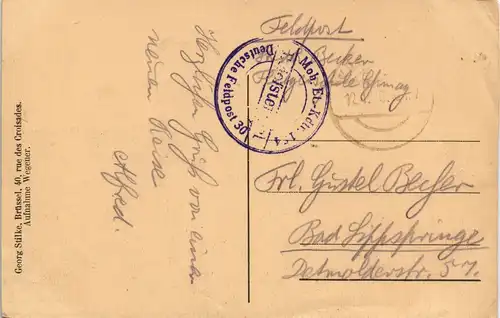 Georg Stilke, Brüssel, 40, rue des Croisades.
Aufnahme Wegener.
Herzlichen Gruß von einer
neuen Reise
Alfred.
Feldpost
Becker
Mob. Et. Kdtr.
Deutsche Feldpost 30
Frl. Gustel Becker
Bad Lippspringe
Detmolderstr. 57.